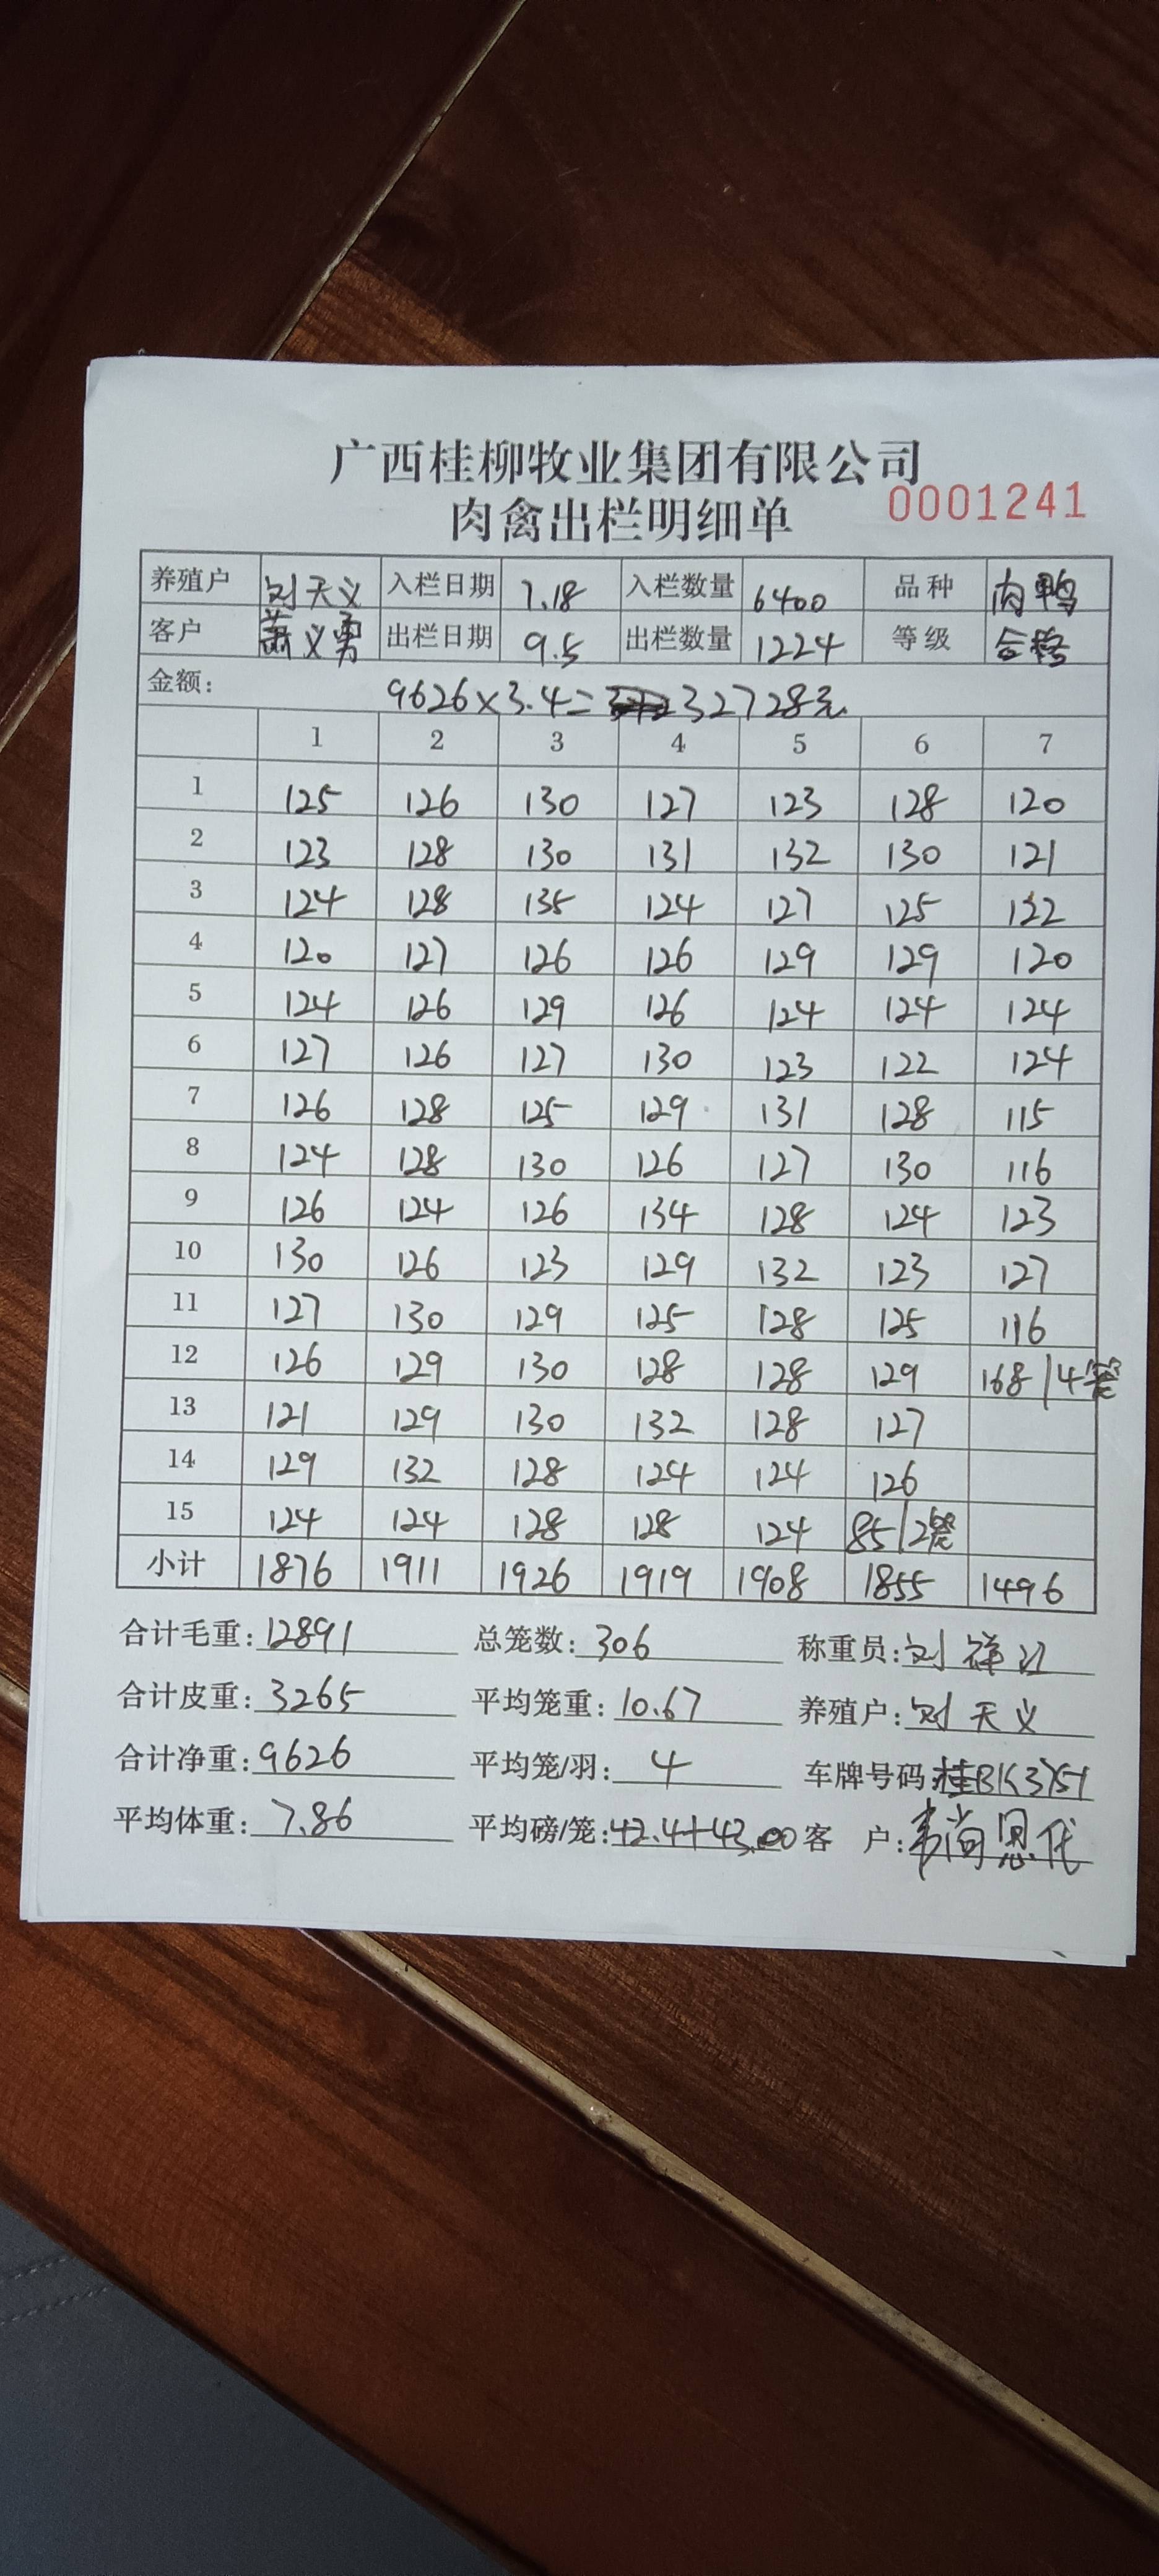 广西桂柳牧业集团有限公司
肉禽出栏明细单 0001241
养殖户 刘天义 入栏日期 7.18 入栏数量 6400 品种 肉鸭
客户 萧义勇 出栏日期 9.5 出栏数量 1224 等级 合格
金额: 9626×3.4= 32728元
1 2 3 4 5 6 7
1 125 126 130 127 123 128 120
2 123 128 130 131 132 130 121
3 124 128 135 124 127 125 122
4 120 127 126 126 129 129 120
5 124 126 129 126 124 124 124
6 127 126 127 130 123 122 124
7 126 128 125 129 131 128 115
8 124 128 130 126 127 130 116
9 126 124 126 134 128 124 123
10 130 126 123 129 132 123 127
11 127 130 129 125 128 125 116
12 126 129 130 128 128 129 168/4笼
13 121 129 130 132 128 127
14 129 132 128 124 124 126
15 124 124 128 128 124 85/2笼
小计 1876 1911 1926 1919 1908 1855 1496
合计毛重: 12891 总笼数: 306 称重员: 刘祥江
合计皮重: 3265 平均笼重: 10.67 养殖户: 刘天义
合计净重: 9626 平均笼/羽: 4 车牌号码:
平均体重: 7.86 平均磅/笼: 42.4+43.00 客 户: 韦尚恩代